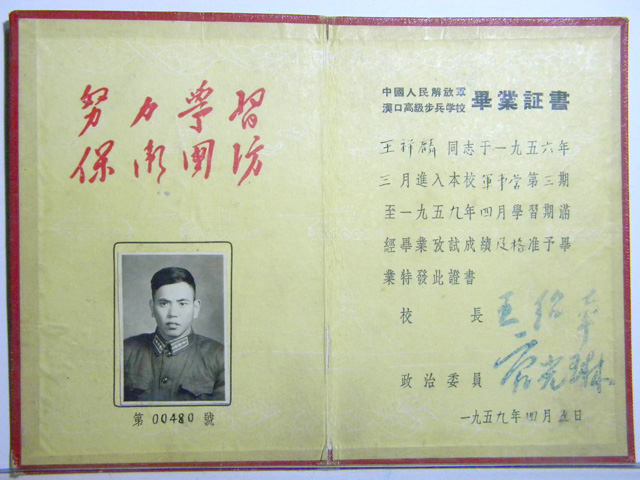 努力學習
保衛國防
第00480號
中國人民解放軍
漢口高級步兵學校 畢業証書
王祥麟同志于一九五六年
三月進入本校軍事営第三期
至一九五九年四月學習期滿
經畢業攷試成績及格准予畢
業特發此證書
校長
政治委員
一九五九年四月五日